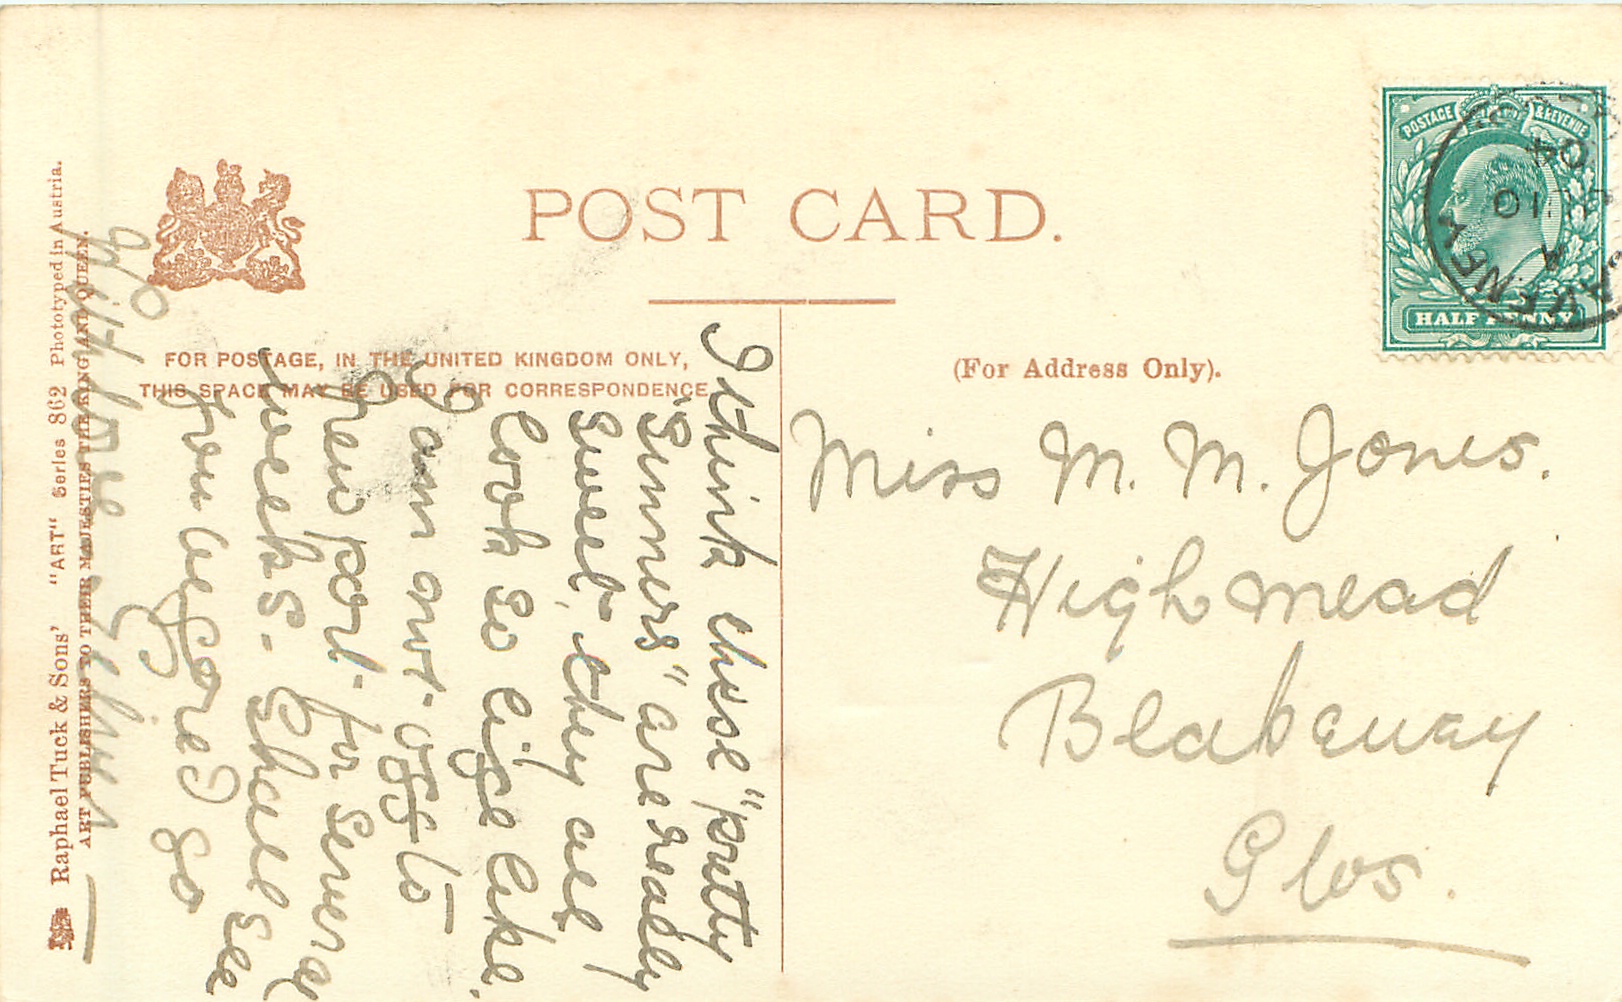 POST CARD.
FOR POSTAGE, IN THE UNITED KINGDOM ONLY,
THIS SPACE MAY BE USED FOR CORRESPONDENCE
(For Address Only).
POSTAGE & REVENUE
HALF PENNY
10
04
I think these "pretty
Sinners" are really
sweet, they all
look so life like.
I am not off to
Newport for several
weeks. Shall see
you before I go
With love
Miss M. M. Jones.
Highmead
Blakeney
Glos.
Raphael Tuck & Sons' "ART" Series 862 Phototyped in Austria.
ART PUBLISHERS TO THEIR MAJESTIES THE KING AND QUEEN.